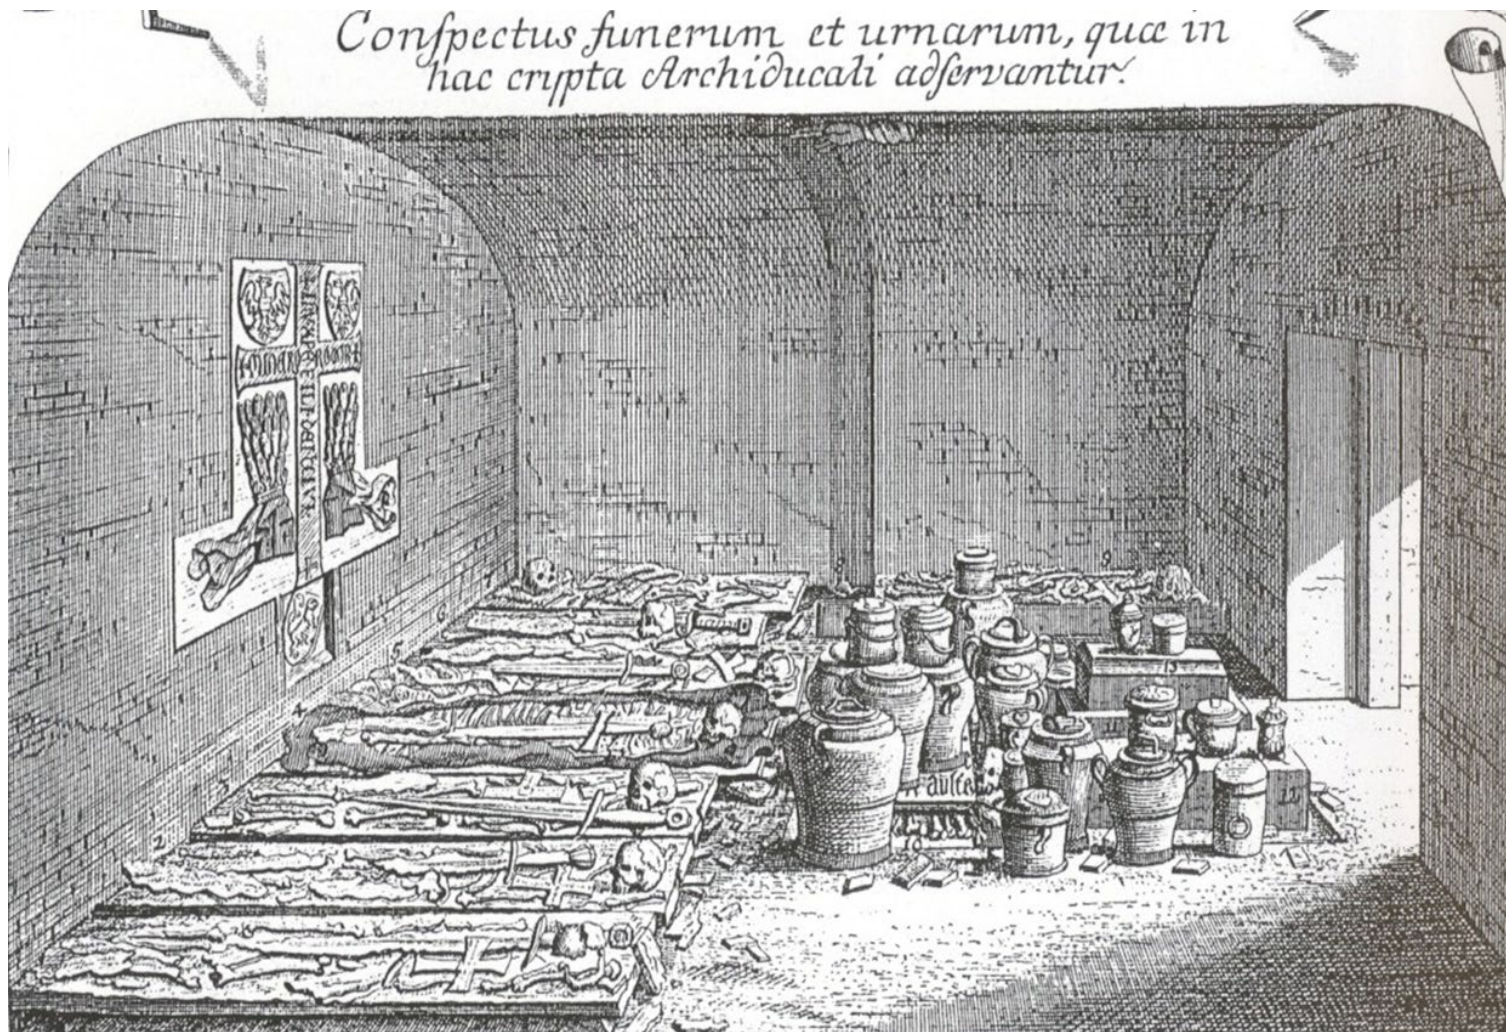 Conſpectus funerum et urnarum, quæ in
hac crypta Archiducali adſervantur.
9
7
6
5
4
13
3
auſt
12
2